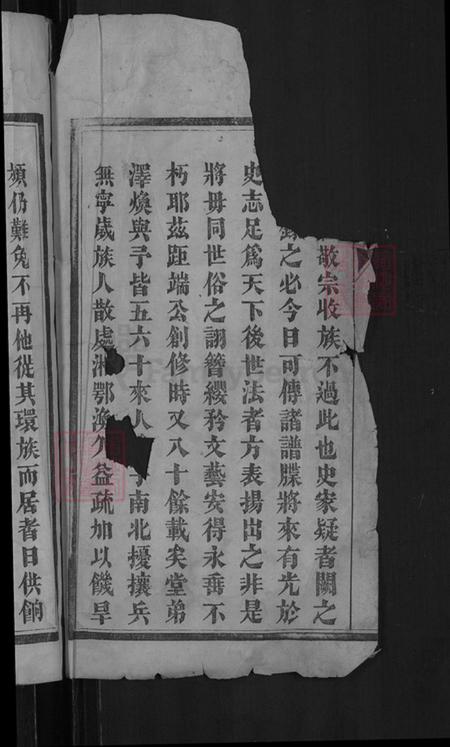 敬宗收族不過此也史家疑者闕之
錄之必今日可傳諸譜牒將來有光於
史志足爲天下後世法者方表揚出之非是
將毋同世俗之詡簪纓矜文藝安得永垂不
朽耶茲距端公創修時又八十餘載矣堂弟
澤煥與予皆五六十來人南北擾攘兵
無寧歲族人散處湘鄂渙益疏加以饑旱
頻仍難免不再他從其環族而居者日供餉